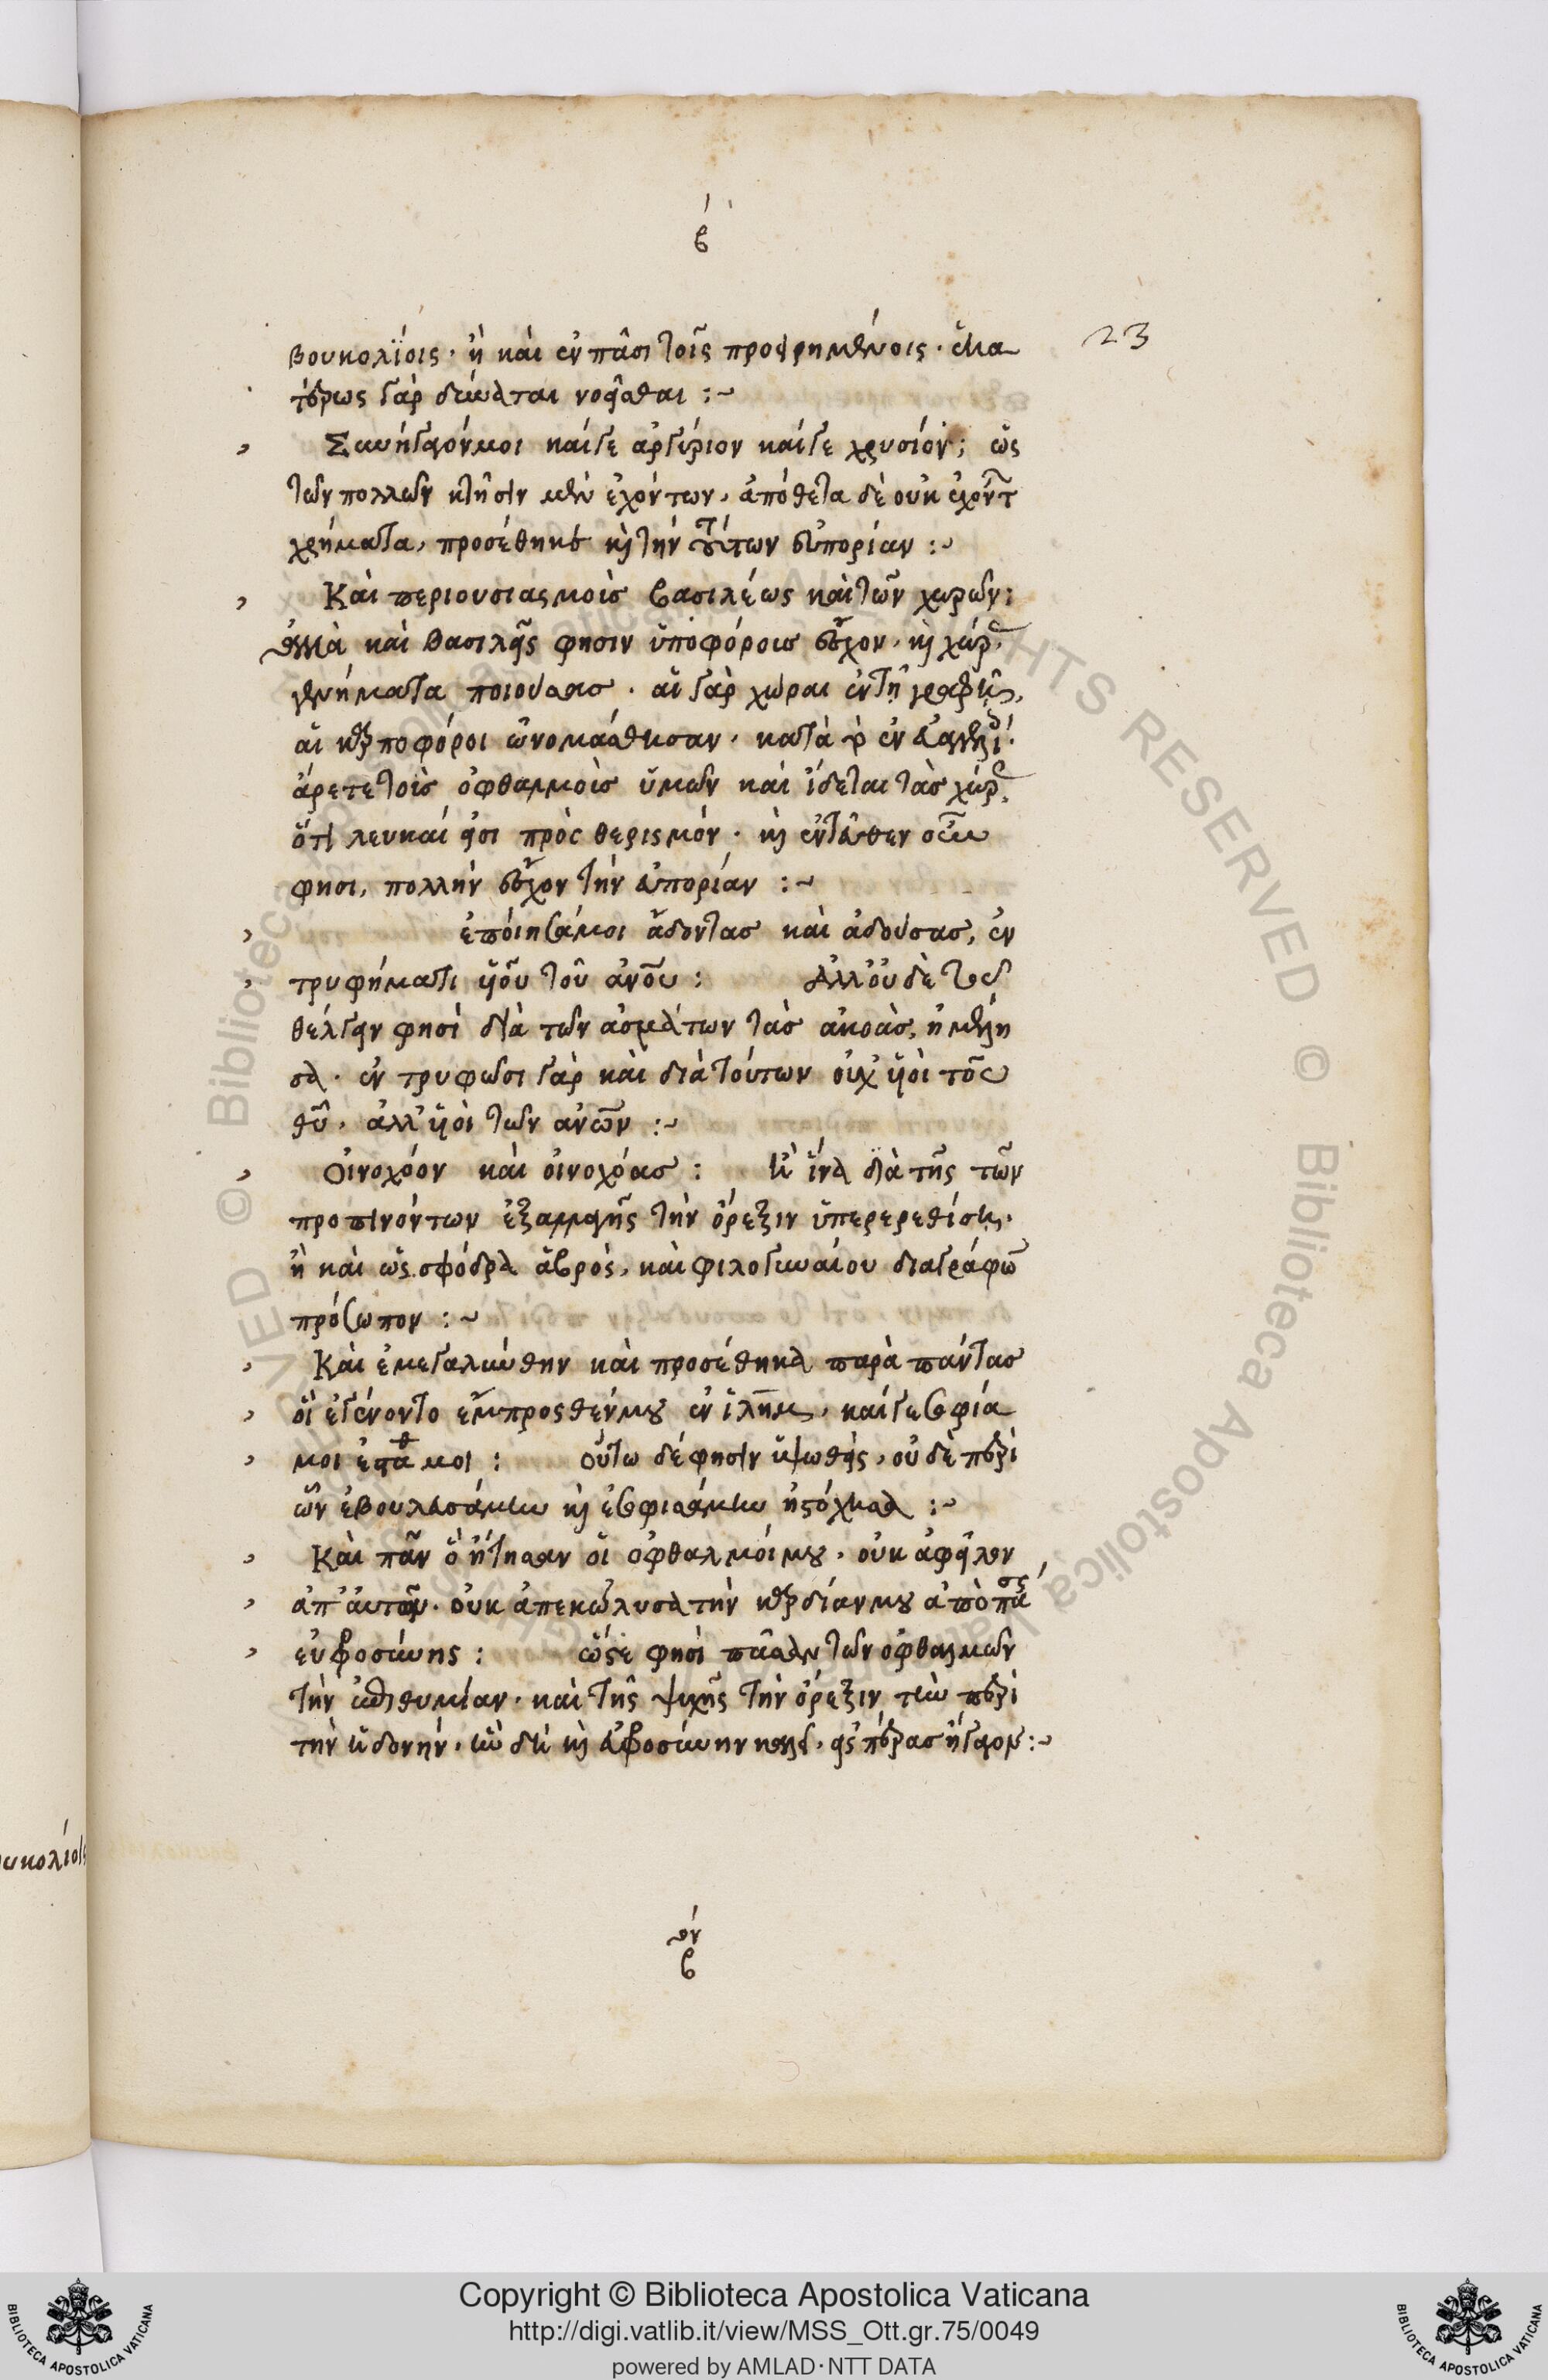 β
23
βουκολΐοις · ἢ καὶ ἐν πᾶσι τοῖς προειρημένοις · ἑκα
τέρως γὰρ δύναται νοεῖσθαι :~
Συνήγαγόν μοι καίγε ἀργύριον καίγε χρυσίον ; ὡς
τῶν πολλῶν κτῆσιν μὲν ἐχόντων, ἀπόθετα δὲ οὐκ ἐχόντ
χρήματα, προσέθηκε κ τὴν τούτων εὐπορίαν :~
Καὶ περιουσιασμοὶσ βασιλέως καὶ τῶν χωρῶν :
ἀλλὰ καὶ βασιλεῖς φησιν ὑποφόρουσ εἶχον, κ χώρ
γεννήματα ποιούσασ · αἱ γὰρ χώραι ἐν τῇ γραφῇ,
αἱ καρποφόροι ὠνομάσθησαν · κατὰ τὸ ἐν
ἄρετε τοὺσ ὀφθαλμοὺσ ὑμῶν καὶ ἴδεται τὰσ χώρ
ὅτι λευκαί εἰσι πρὸς θερισμόν · κ ἐντεῦθεν οὖν
φησι, πολλὴν εἶχον τὴν εὐπορίαν :~
ἐποίησά μοι ᾄδοντασ καὶ ᾀδούσασ, ἐν
τρυφήματι υἱοῦ τοῦ ἀνου : Ἀλλ οὐδὲ τὸ
θέλγειν φησὶ διὰ τῶν ἀσμάτων τὰσ ἀκοὰσ, ἠμέλη
σα · ἐν τρυφῶσι γὰρ καὶ διὰ τούτων οὐχ υἱοὶ τοῦ
θυ, ἀλλ υἱοὶ τῶν ἀνων :~
Οἰνοχόον καὶ οἰνοχόασ : ἵνα διὰ τῆς τῶν
προπινόντων ἐξαλλαγῆς τὴν ὄρεξιν ὑπερερεθίσῃ,
ἢ καὶ ὡς σφόδρα ἁβρὸς, καὶ φιλογυναίου διαγράφων
πρόσωπον :~
Καὶ ἐμεγαλύνθην καὶ προσέθηκα παρὰ πάντασ
οἳ ἐγένοντο ἔμπροσθέν μου ἐν ἰλημ, καίγε σοφία
μοι ἐστάθη μοι : οὕτω δέ φησιν ὑψωθεὶς, οὐδὲ περὶ
ὧν ἐβουλευσάμην κ ἐσοφισάμην ἠστόχησα :~
Καὶ πᾶν ὃ ᾔτησαν οἱ ὀφθαλμοί μου, οὐκ ἀφεῖλον
ἀπ αὐτῶν · οὐκ ἀπεκώλυσα τὴν καρδίαν μου ἀπὸ πάσης
εὐφροσύνης : ὥστε φησὶ πᾶσαν τῶν ὀφθαλμῶν
τὴν ἐπιθυμίαν, καὶ τῆς ψυχῆς τὴν ὄρεξιν τὴν περὶ
τὴν ἡδονήν, ἣν δὴ κ εὐφροσύνην καλεῖ, εἰς πέρασ ἤγαγον :~
ον
β
υκολίοις
Copyright © Biblioteca Apostolica Vaticana
http://digi.vatlib.it/view/MSS_Ott.gr.75/0049
powered by AMLAD·NTT DATA